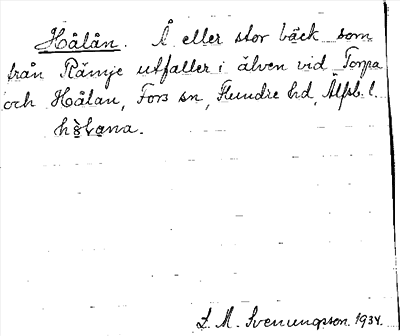 Hålån. Å eller stor bäck som
från Rämje utfaller i älven vid Torpa
och Hålan, Fors sn, Flundre hd, Älfsb. l.
L. M. Svenungsson. 1934.